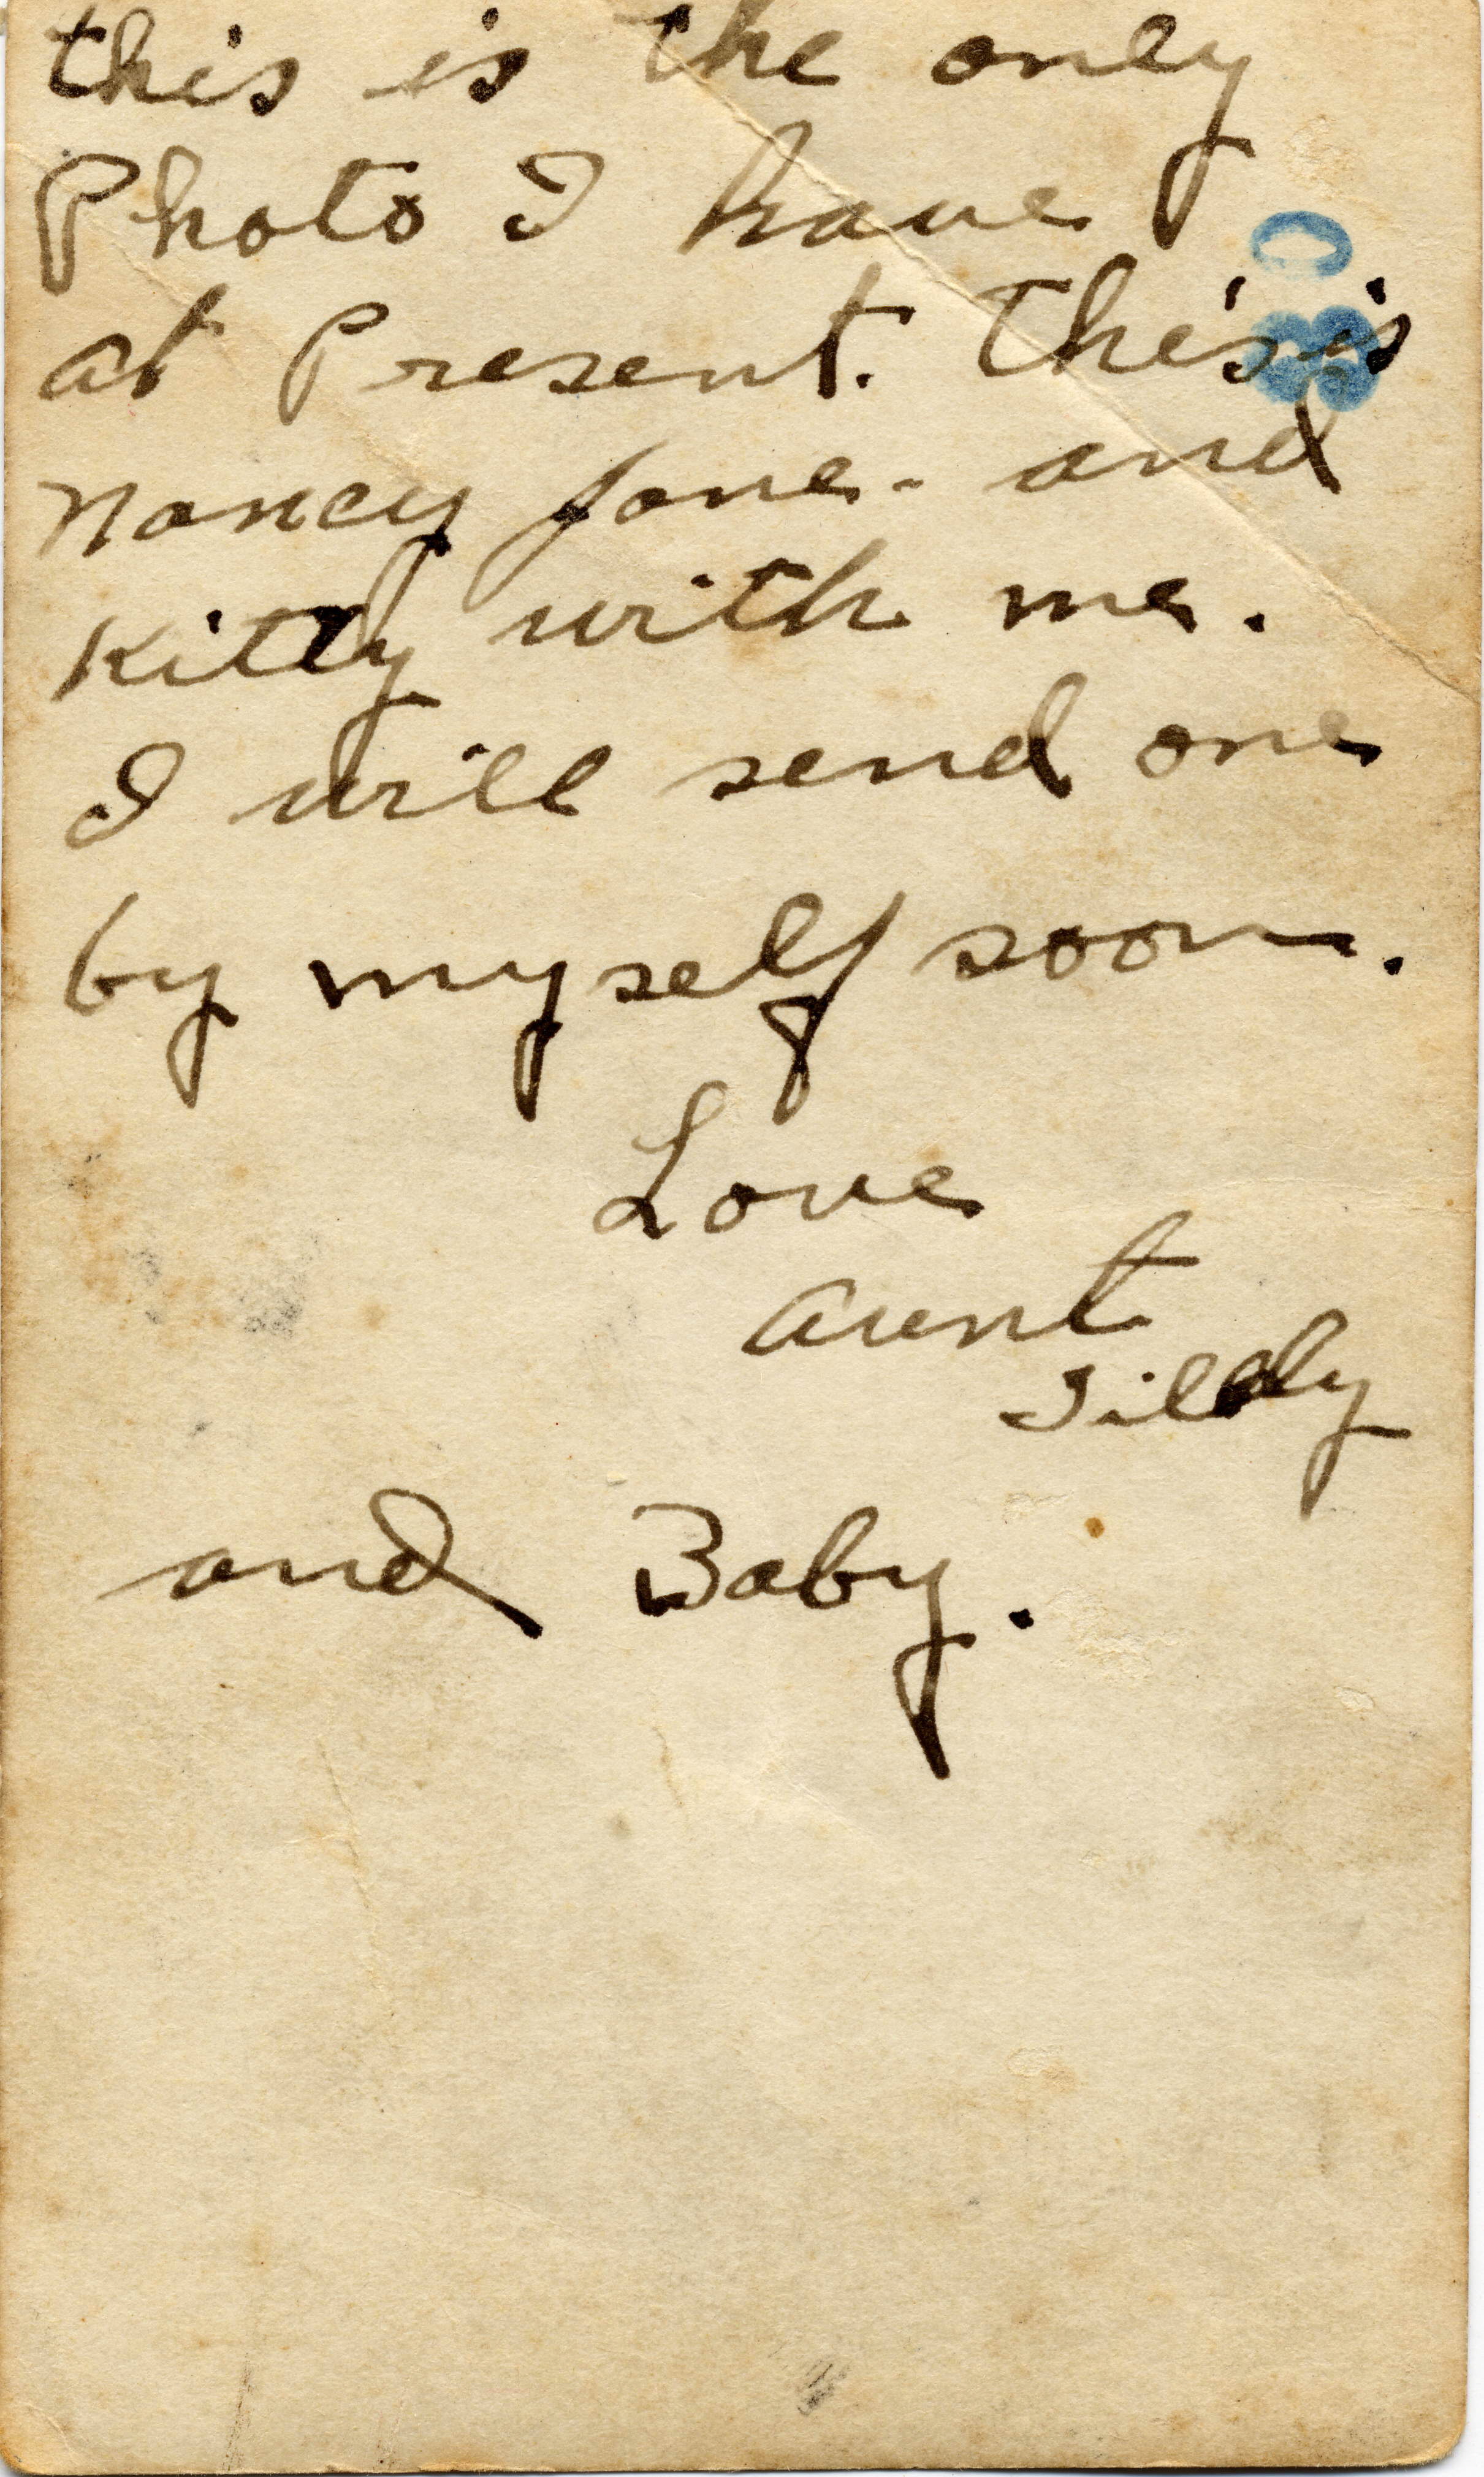 this is the only
Photo I have
at Present. This is
Nancy Jane. and
Kitty with me.
I will send one
by myself soon.
Love
aunt
Tilldy
and Baby.